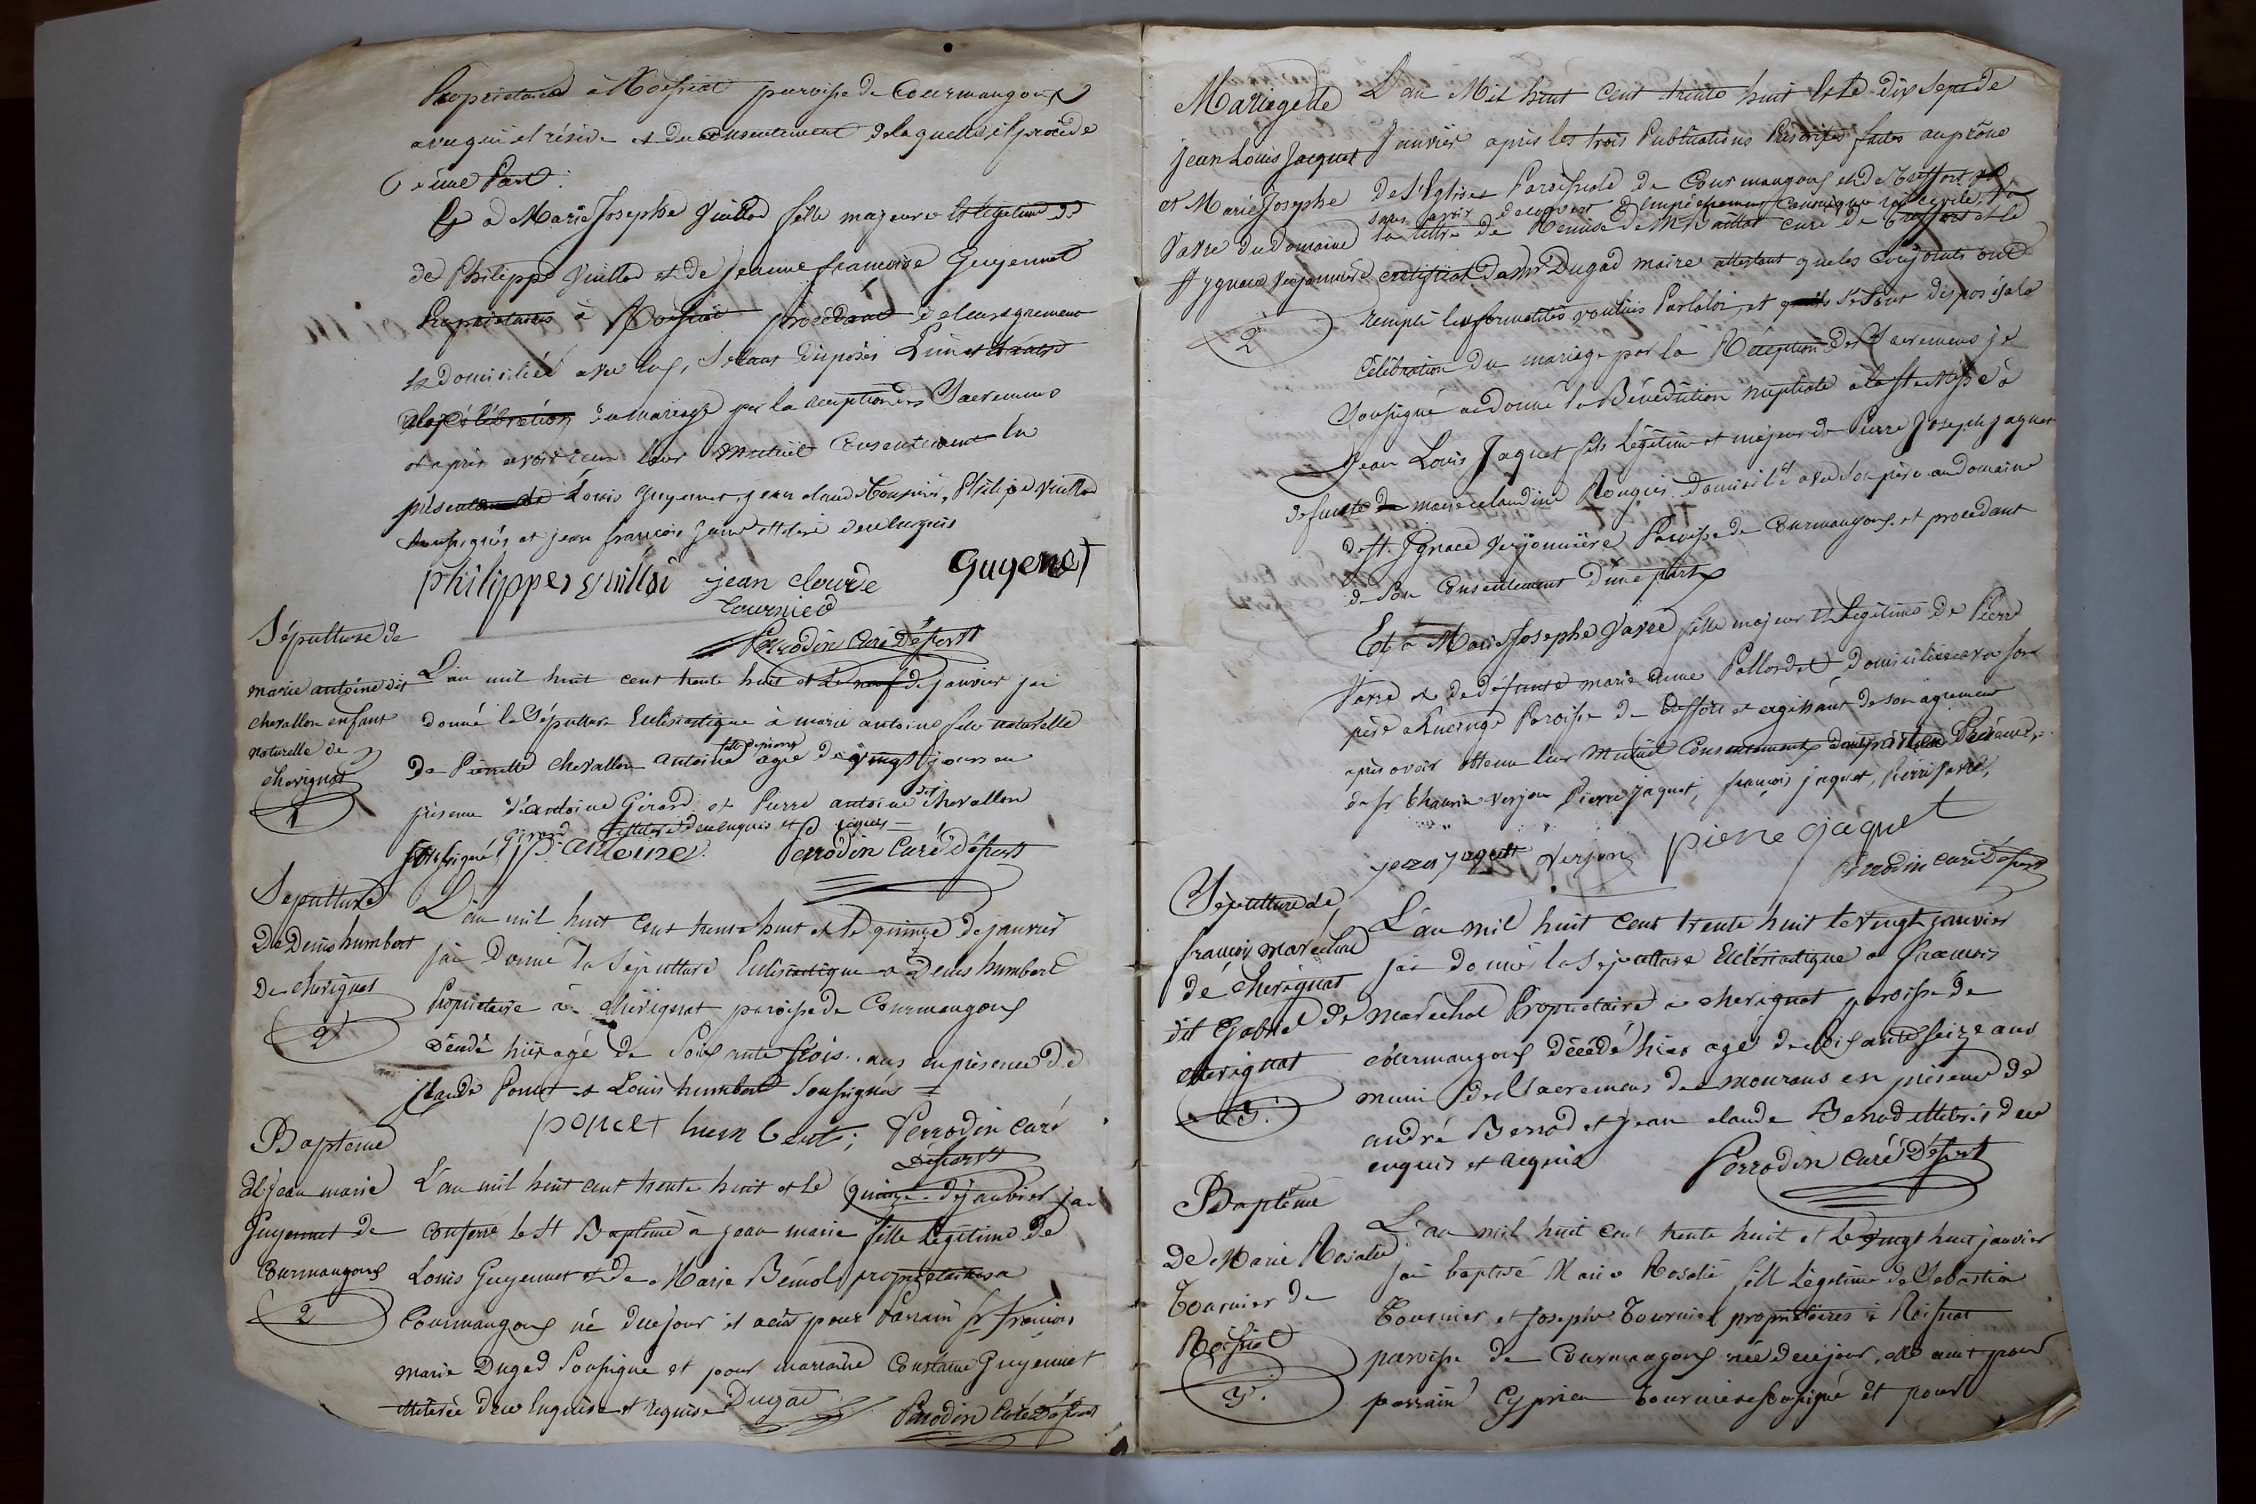 Proprietaires à Roissiat paroisse de Courmangoux
avec qui il réside et du consentement de laquelle il procède
d'une Part.
Et à Marie Josephe Vuillod fille majeure et légitime
de Philippe Vuillod et de Jeanne françoise Guyennet
Proprietaires à Roissiat procédant de leur agrement
et domiciliée avec eux, s'étant disposés l'un et l'autre
à la Célébration du mariage par la reception des Sacremens
et après avoir reçu leur mutuel Consentement en
présence de Louis Guyennet, jean claude Tournier, Philippe Vuillod
soussignés et jean françois illitéré de ce enquis
philippes vuillod jean cloude Guyenet
tournied
Perrodin Curé Déssert
Sépulture de
marie antoine dit
chevallon enfant
naturelle de
cherignat
1
L'an mil huit cent trente huit et le neuf de janvier jai
donné la Sépulture Ecclésiastique à marie antoine fille naturelle
de Pierrette chevallon antoine agée de vingt jours en
présence d'antoine Girard et Pierre antoine dit chevallon
soussigné, Girard illitéré de ce enquis et requis
P. antoine Perrodin Curé Déssert
Sépulture
De Denis humbert
De cherignat
2
L'an mil huit cent trente huit et le quinze de janvier
jai Donné la Sépulture Ecclésiastique à Denis humbert
Propriétaire à cherignat paroisse de Courmangoux
décédé hier agé de Soixante trois ans en présence de
Claude Poncet et Louis humbert Soussignés
poncet humbert; Perrodin curé
Déssert
Baptême
de jean marie
Guyennet de
Courmangoux
2
L'an mil huit cent trente huit et le quinze de janvier jai
Conferé le St Baptême à jean marie fille légitime de
Louis Guyennet et de Marie Bénod propriétaires a
Courmangoux né de ce jour il a eu pour Parrain Sr françois
marie Dugad Soussigné et pour marraine Constance Guyennet
illitérée de ce Enquise et requise Dugad Perrodin Curé Déssert
Mariage de
jean Louis Jacquet
et Marie Josephe
Vavre du Domaine
St ygnace verjonnière
2
L'an Mil huit cent trente huit et le dix Sept de
Janvier après les trois Publications Prescrites faites au prône
de l'Eglise Paroissiale de Courmangoux et de Treffort
sans avoir découvert d'empêchement canonique ni civile, vu
la lettre de Remise de Mr curé de Treffort et le
certificat de Mr Dugad maire attestant que les conjoints ont
rempli les formalités voulues Par la loi, et qu'ils se sont disposés à la
Célébration du mariage par la Réception des Sacremens je
Soussigné ai donné la Bénédiction nuptiale à la ste Messe à
Jean Louis Jaquet fils légitime et majeur de Pierre Joseph Jaquet
défunte marie claudine Rougier domicilié avec Son père au domaine
de St. Ignace Verjonnière Paroisse de Courmangoux et procédant
de Son Consentement d'une part
Et à Marie Josephe Vavre fille majeure et Légitime de Pierre
Vavre et de défunte marie anne Pallordet domiciliée avec son
père a Paroisse de Treffort et agissant de son agrement
après avoir obtenu leur mutuel Consentement en Présence
de Sr Verjon Pierre jaquet, françois jaquet, Pierre Vavre,
jaquet Verjon pierre jaquet
Perrodin curé Déssert
Sépulture de
françois maréchal
de cherignat
dit Gabriel de
cherignat
3
L'an mil huit cent trente huit le vingt janvier
jai donné la Sépulture Ecclésiastique a françois
maréchal Propriétaire a cherignat paroisse de
courmangoux décédé hier agé de Soixante Seize ans
muni des Sacremens des mourans en présence de
andré Benod et jean claude Benod illitérés de ce
enquis et requis Perrodin Curé Déssert
Baptême
De Marie Rosalie
Tournier de
Roissiat
3.
L'an mil huit cent trente huit et le vingt huit janvier
jai baptisé Marie Rosalie fille Légitime de Sebastien
Tournier et Josephe Tournier propriétaires à Roissiat
paroisse de Courmangoux née de ce jour, elle a eut pour
parrain Cyprien Tournier Soussigné et pour